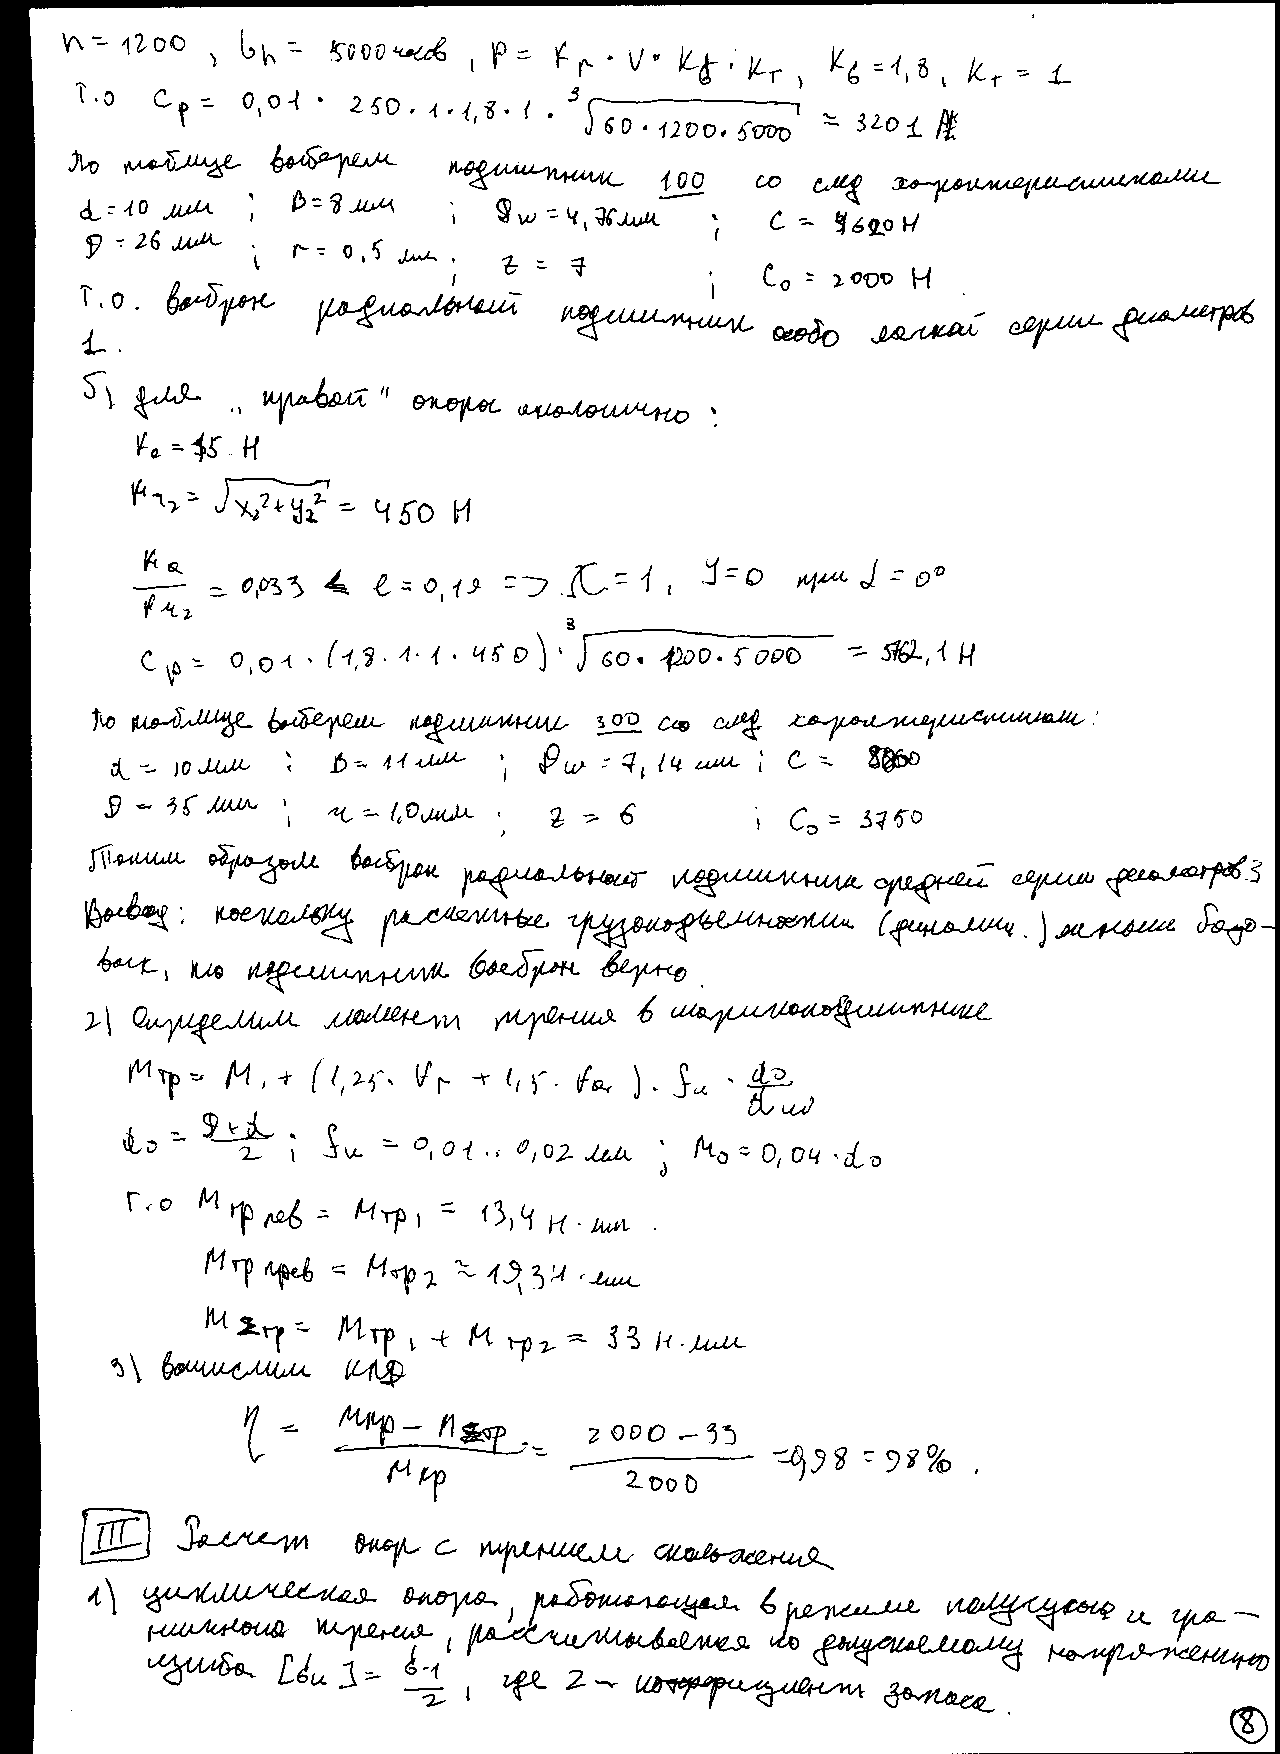 n = 1200, Lh = 5000 часов, P = Fr · V · Kб · Kт, Kб = 1,8, Kт = 1
Т.о Cp = 0,01 · 250 · 1 · 1,8 · 1 · ³√(60 · 1200 · 5000) = 3201 Н
По таблице выберем подшипник 100 со след характеристиками
d = 10 мм ; B = 8 мм ; Dw = 4,76 мм ; C = 4620 Н
D = 26 мм ; r = 0,5 мм ; z = 7 ; C₀ = 2000 Н
Т.о. выбран радиальный подшипник особо легкой серии диаметров
1.
б) для „правой" опоры аналогично :
Fa = 15 Н
Fr₂ = √(x₂² + y₂²) = 450 Н
Fa/Fr₂ = 0,033 < e = 0,19 => X = 1, Y = 0 при α = 0°
Cp = 0,01 · (1,8 · 1 · 1 · 450) · ³√(60 · 1200 · 5000) = 5762,1 Н
По таблице выберем подшипник 300 со след характеристиками:
d = 10 мм ; B = 11 мм ; Dw = 7,14 мм ; C =
D = 35 мм ; r = 1,0 мм ; z = 6 ; C₀ = 3750
Таким образом выбран радиальный подшипник средней серии диаметров 3
Вывод: поскольку расчетные грузоподъемности (динамич.) меньше базо-
вых, то подшипник выбран верно
2) Определим момент трения в шарикоподшипнике
Mтр = M₀ + (1,25 · Fr + 1,5 · Fa) · fк · d₀/dw
d₀ = (D+d)/2 ; fк = 0,01..0,02 мм ; M₀ = 0,04 · d₀
Т.о Mтр лев = Mтр₁ = 13,4 Н·мм.
Mтр прав = Mтр₂ ≈ 19,3 Н·мм
MΣтр = Mтр₁ + Mтр₂ = 33 Н·мм
3) вычислим КПД
η = (Mкр − MΣтр)/Mкр = (2000 − 33)/2000 = 0,98 = 98%.
III Расчет опор с трением скольжения
1) циклическая опора, работающая в режиме полусухого и гра-
ничного трения, рассчитывается по допускаемому напряжению
изгиба [σи] = σ-1/2, где 2 – коэффициент запаса.
8